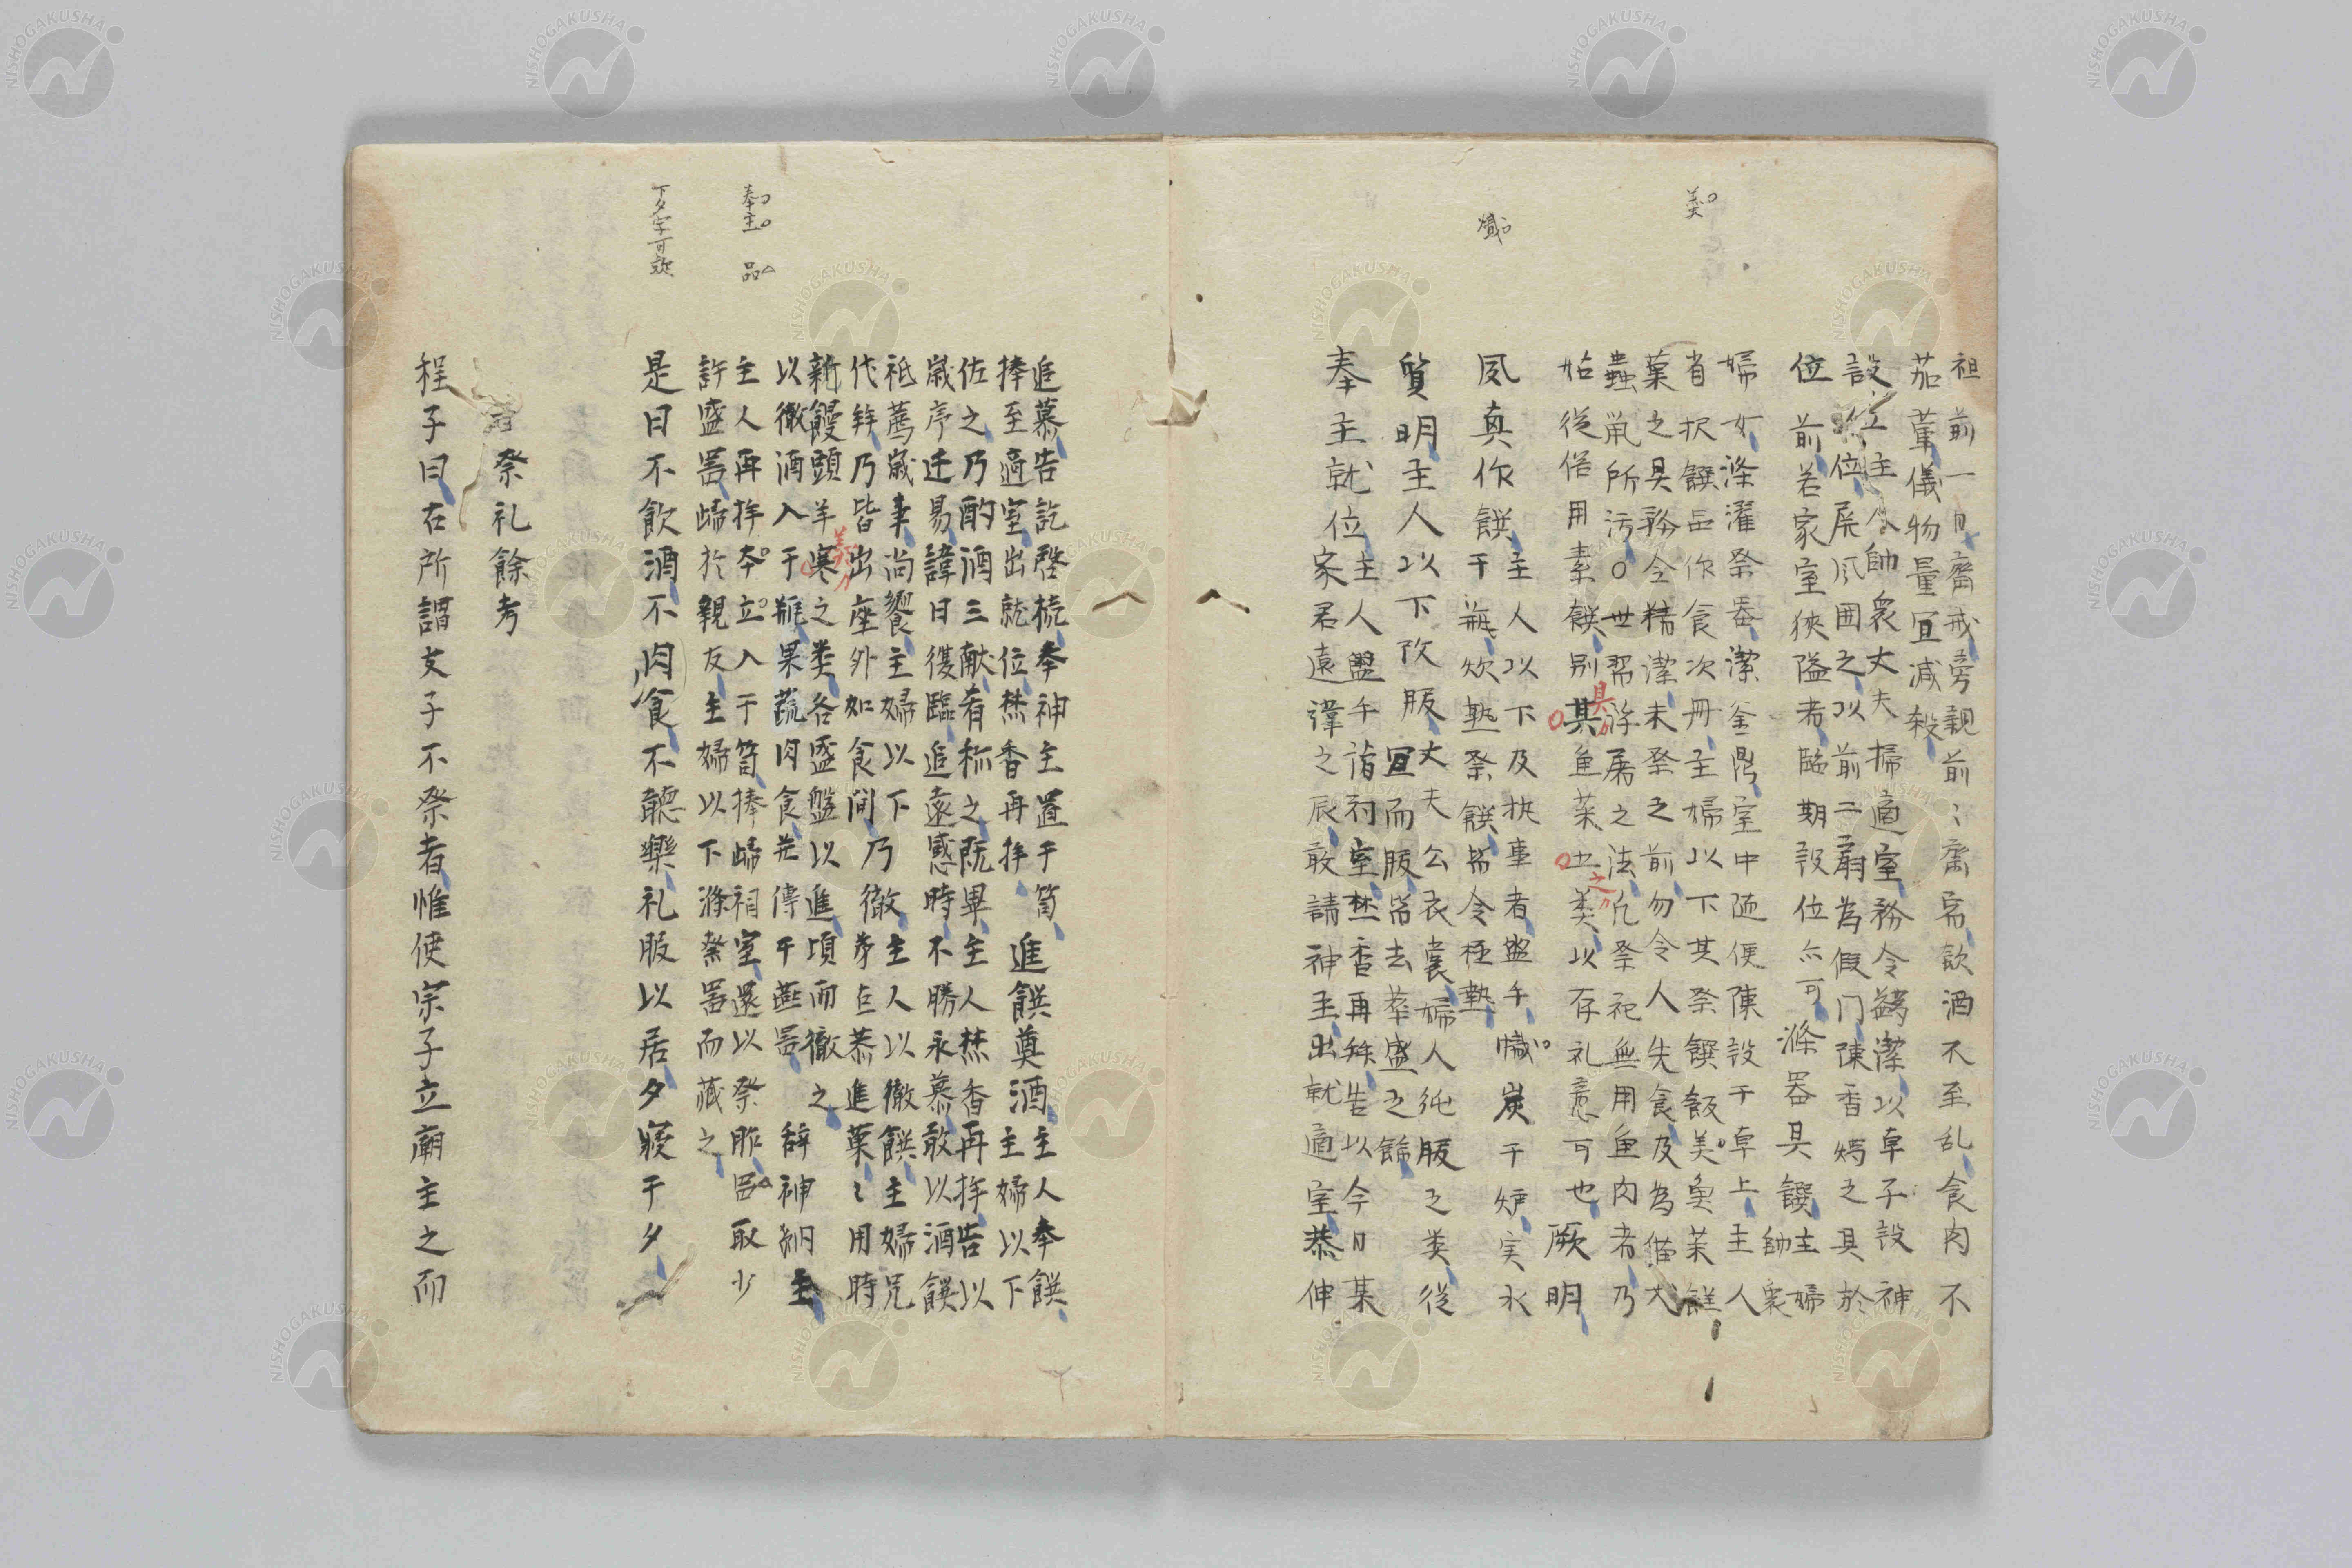 祖前一日齋戒旁親前〻齋需飲酒不至乱食肉不
茄葷儀物量宜減殺
設位主人帥衆丈夫掃適室務令蠲潔以卓子設神
位屏風囲之以前二扇為假门陳香燭之具於
位前若家室狹隘者臨期設位亦可滌器具饌主婦帥衆
婦女滌濯祭器潔釜鼎室中随便陳設于卓上主人
省択饌品作食次冊主婦以下其祭饌飯美魚茱餻
菓之具務令精潔未祭之前勿令人先食及為猫犬
蟲鼠所污○世習浮屠之法凡祭祀無用魚肉者乃
姑從俗用素饌別其魚茱之类以存礼意可也厥明
夙真作饌主人以下及执事者盥手熾炭于炉实水
于瓶炊熟祭饌皆令極熱
質明主人以下改服丈夫公衣裳婦人純服之类從
宜而服皆去華盛之餙
奉主就位主人盥手詣祠室焚香再拜告以今日某
家君遠諱之辰敢請神主出就適室恭伸
追慕告訖啓梳奉神主置于笥進饌奠酒主人奉饌
捧至適室出就位焚香再拜主婦以下
佐之乃酌酒三献有称之既畢主人焚香再拜告以
歳序迁易諱日復臨追遠感時不勝永慕敢以酒饌
祗薦歳事尚饗主婦以下乃徹主人以徹饌主婦兄
代拜乃皆出座外如食间乃茅巨恭進菓〻用時
新饅頭羊寒之类各盛盤以進頃而徹之
以徹酒入于瓶果蔬肉食并停于燕器辞神納主
主人再拜夲立入于笥捧歸祠室還以祭胙品取少
許盛器歸於親友主婦以下滌祭器而藏之
是日不飲酒不肉食不聽樂礼服以居夕寝于夕
祭礼餘考
程子曰在所謂支子不祭者惟使宗子立廟主之而
羹
熾
奉主 品
下夕字可疑
羹カ
具カ
之カ